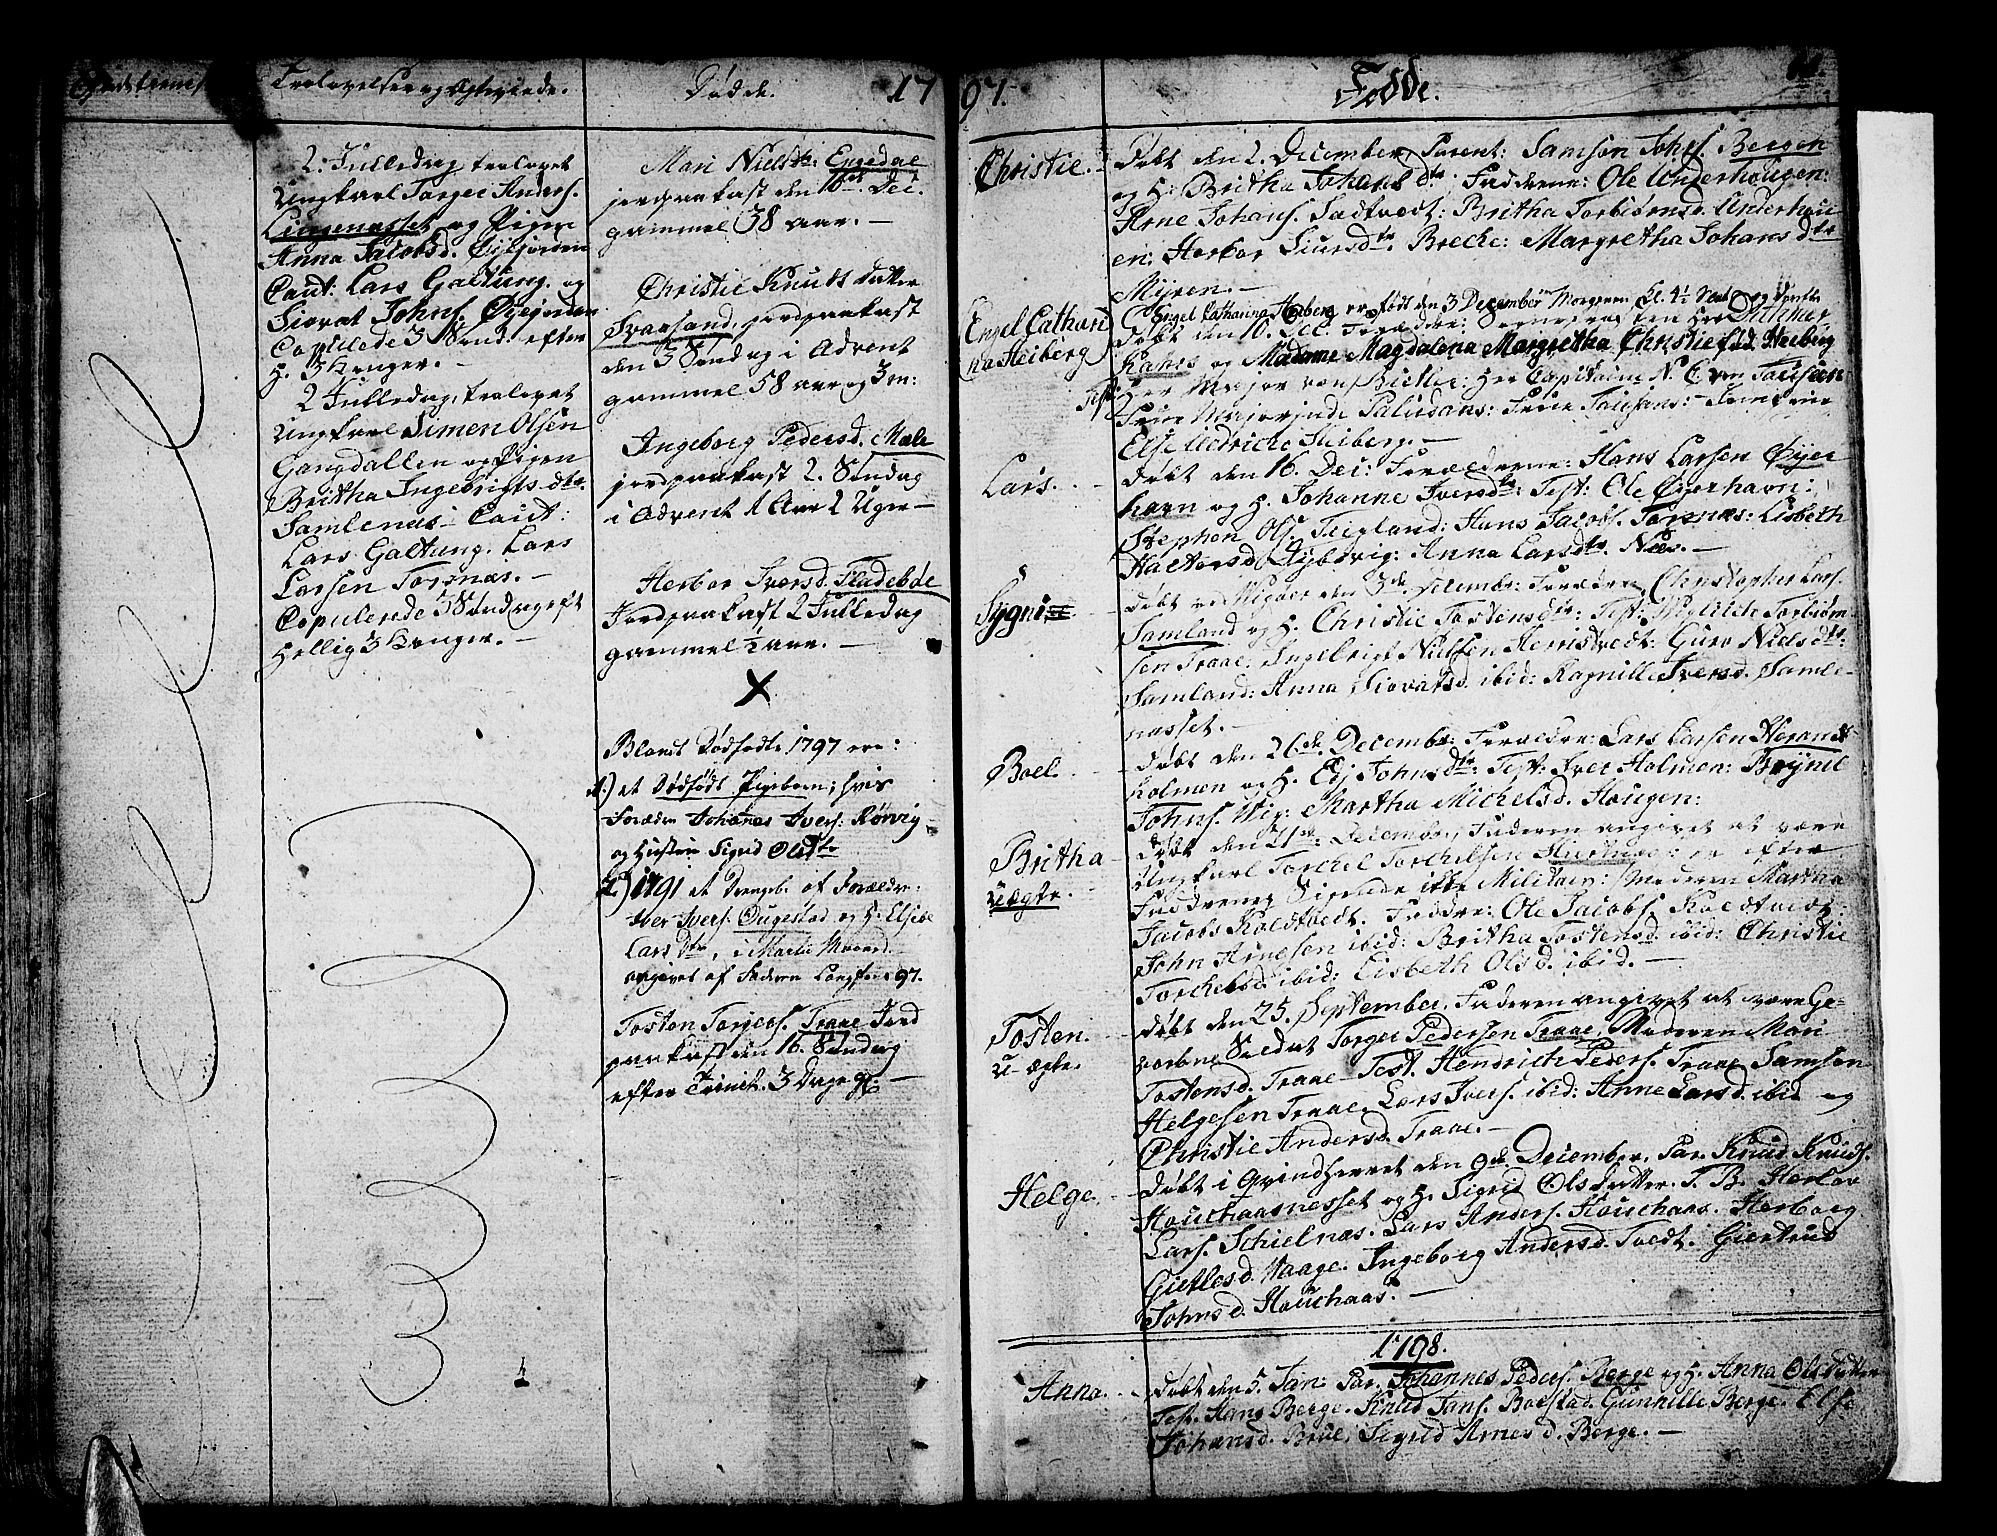 Trolovelser og Ægteviede.
2. Juledag trolovet
Ungkarl Torger Anders.
Lingenæsset og Pigen
Anna Jacobsd. Øiefjorden
Caut: Lars Galtung. og
Siovat Johns. Øiefjorden
Copulerede 3 Sønd. efter
H. 3 Konger. -
2 Juledag, trolovet
Ungkarl Simen Olsen
Gangdallen og Pigen
Britha Ingebrigts dtr.
Samlenæs - Caut:
Lars Galtung. Lars
Larsen Torsnæs. -
Copulerede 3 Søndag eft
Hellig 3 Konger. -
Døde.
Mari Nielsdtr: Engedal
jordpaakast den 16de Dec.
gammel 38 aar. -
Christie Knuds datter
Svaasand, jordpaakast
den 3 Søndag i Advent
gammel 58 aar og 3 m:
Ingeborg Pedersd. Mæle
jordpaakast 2. Søndag
i Advent 1 Aar 2 Uger -
Herbor Iversd. Fladebøe
Jordpaakast 2 Juledag
gammel ½ aar. -
X
Blandt Dødfødte 1797 ere:
1.) et Dødfødt Pigebarn, hvis
Forældre Johanes Ivers: Rørvig
og Hustru Sigrid Olsdtr
2) 1791 et Drengeb. af Forældre
Iver Ivers: Øugestad og H: Elsebe
Lars Dtr, i Martii Maaned
angivet af Faderen 97.
Tosten Torgers. Traae Jord
paakast den 16. Søndag
efter Trinit. 3 Dage gl. -
1797.
Fødde.
Christie. - Døbt den 2. December, Parent: Samson Johs. Bergen
og H. Britha Johansdtr. Fadderne: Ole Underhougen:
Arne Johans. Sadtvedt: Britha Torbiørnsd. Underhou
en: Herbor Siursdtr. Breche: Margretha Johansdtr
Myren. -
Engel Catharina Heiberg er født den 3 December Morgenen Kl. 4½
Engel Cathari
na Heiberg
Døbt den 10. Dec. Forældre: Hr. Ditmar
Kahrs og Madame Magdalena Margretha Christie fød Heiberg
Test: Her Major von Bietler: Her Capitaine N. C. von Tausen
Frue Majorinde Paludans: Frue Tausans: Jomfrue
Else Uldricke Heiberg. -
Lars. Døbt den 16. Dec: Forældrene: Hans Larsen Øyer
havn og H. Johanne Iversdtr: Test: Ole Øyerhavn:
Stephen Ols. Teigland: Hans Jacobs. Torsnæs: Lisbeth
Haltorsd. Dybsvig: Anna Larsdtr. Næs. -
Sygni Døbt ved Wigøer den 3de Decembr: Forældre Christopher Lars.
Samland og H. Christie Tostensdtr: Test: Torbiøm
sen Traae: Ingebrigt Nielsen Hemstvedt: Guro Nielsdtr.
Samland: Anna Siovatsd. ibid: Ragnille Iversd. Samle-
næsset. -
Boel. Døbt den 26de Decembr: Forældre: Lars Larsen Herands
holmen og H. Eli Johnsdtr: Test: Iver Holmen: Brynil
Johns. Wig: Martha Michelsd. Hougen:
Britha
uægte. - Døbt den 21de December, Faderen angivet at være
Ungkarl Torchel Torchelsen: er efter
Faddrenes Sigende ikke Militair: Moderen Martha
Jacobs Koldtvedt. Faddre: Ole Jacobs. Koldtvedt:
John Arnesen ibid: Britha Tostensd. ibid: Christie
Torchelsd. ibid: Lisbeth Olsd. ibid. -
Tosten.
u-ægte. Døbt den 25. September, Faderen angivet at være Ge-
vorbne Soldat Torger Pedersen Traae, Moderen Mari
Tostensd. Traae - Test. Hendrich Peders. Traae Samson
Helgesen Traae, Lars Ivers. ibid: Anne Larsd. ibid og
Christie Andersd. Traae. -
Helge. - Døbt i Qvindherret den 9de December. Par. Knud Knuds.
Houchaasnesset og H. Sigrid Olsdatter. T. B. Herlov
Lars. Schielnæs. Lars Anders. Houchaas. Herborg
Gietlesd. Waage. Ingeborg Andersd. Tvedt. Giertrud
Johnsd. Houchaas. -
1798.
Anna. - Døbt den 5. Jan: Par. Johannes Peders. Berge og H. Anna Olsdatter
Test. Hans Berge. Knud Jans. Borstad. Gunnille Berge. Else
Johansd. Brue, Sigrid Arnesd. Berge. -